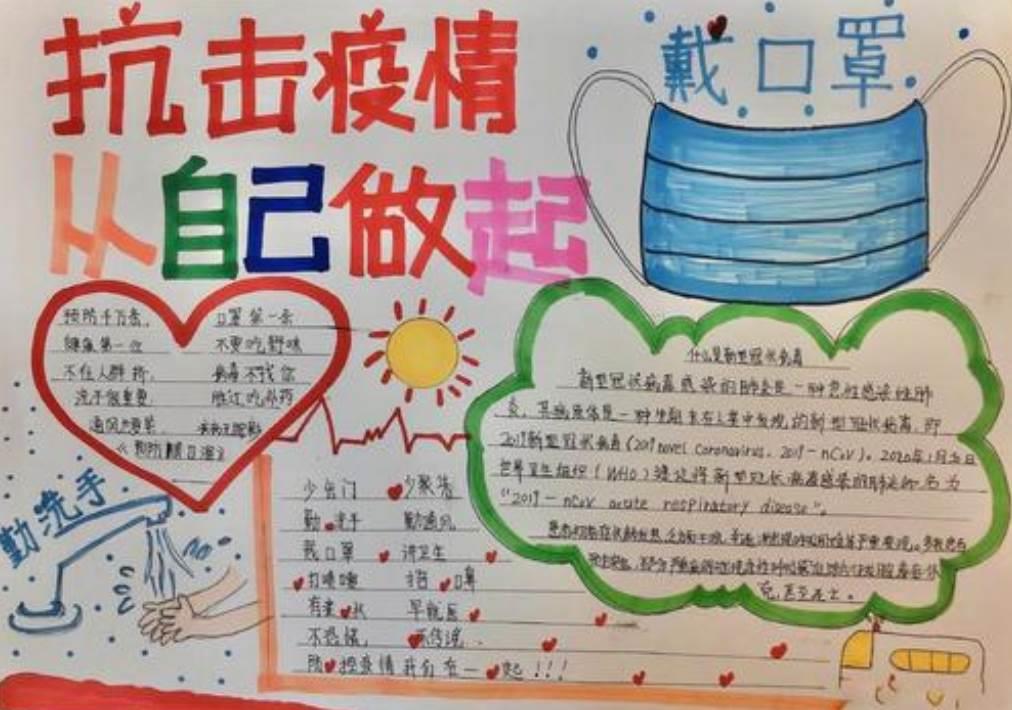 抗击疫情
从自己做起
戴口罩
预防千万条, 口罩第一条
健康第一位 不要吃野味
不往人群挤, 病毒不找你
洗手很重要, 胜过吃补药
通风
《预防顺口溜》
勤洗手
少出门 少聚集
勤洗手 勤通风
戴口罩 讲卫生
打喷嚏 捂口鼻
有症状 早就医
不恐慌, 不传谣.
防控疫情我们在一起!!!
什么是新型冠状病毒
新型冠状病毒感染的肺炎是一种急性感染性肺
炎, 其病原体是一种先前未在人类中发现的新型冠状病毒, 即
2019新型冠状病毒(2019 novel coronavirus, 2019-nCoV)。2020年1月
世界卫生组织(WHO)建议将新型冠状病毒感染的肺炎命名为
"2019-nCoV acute respiratory disease"。
患者初始症状
克, 甚至死亡。